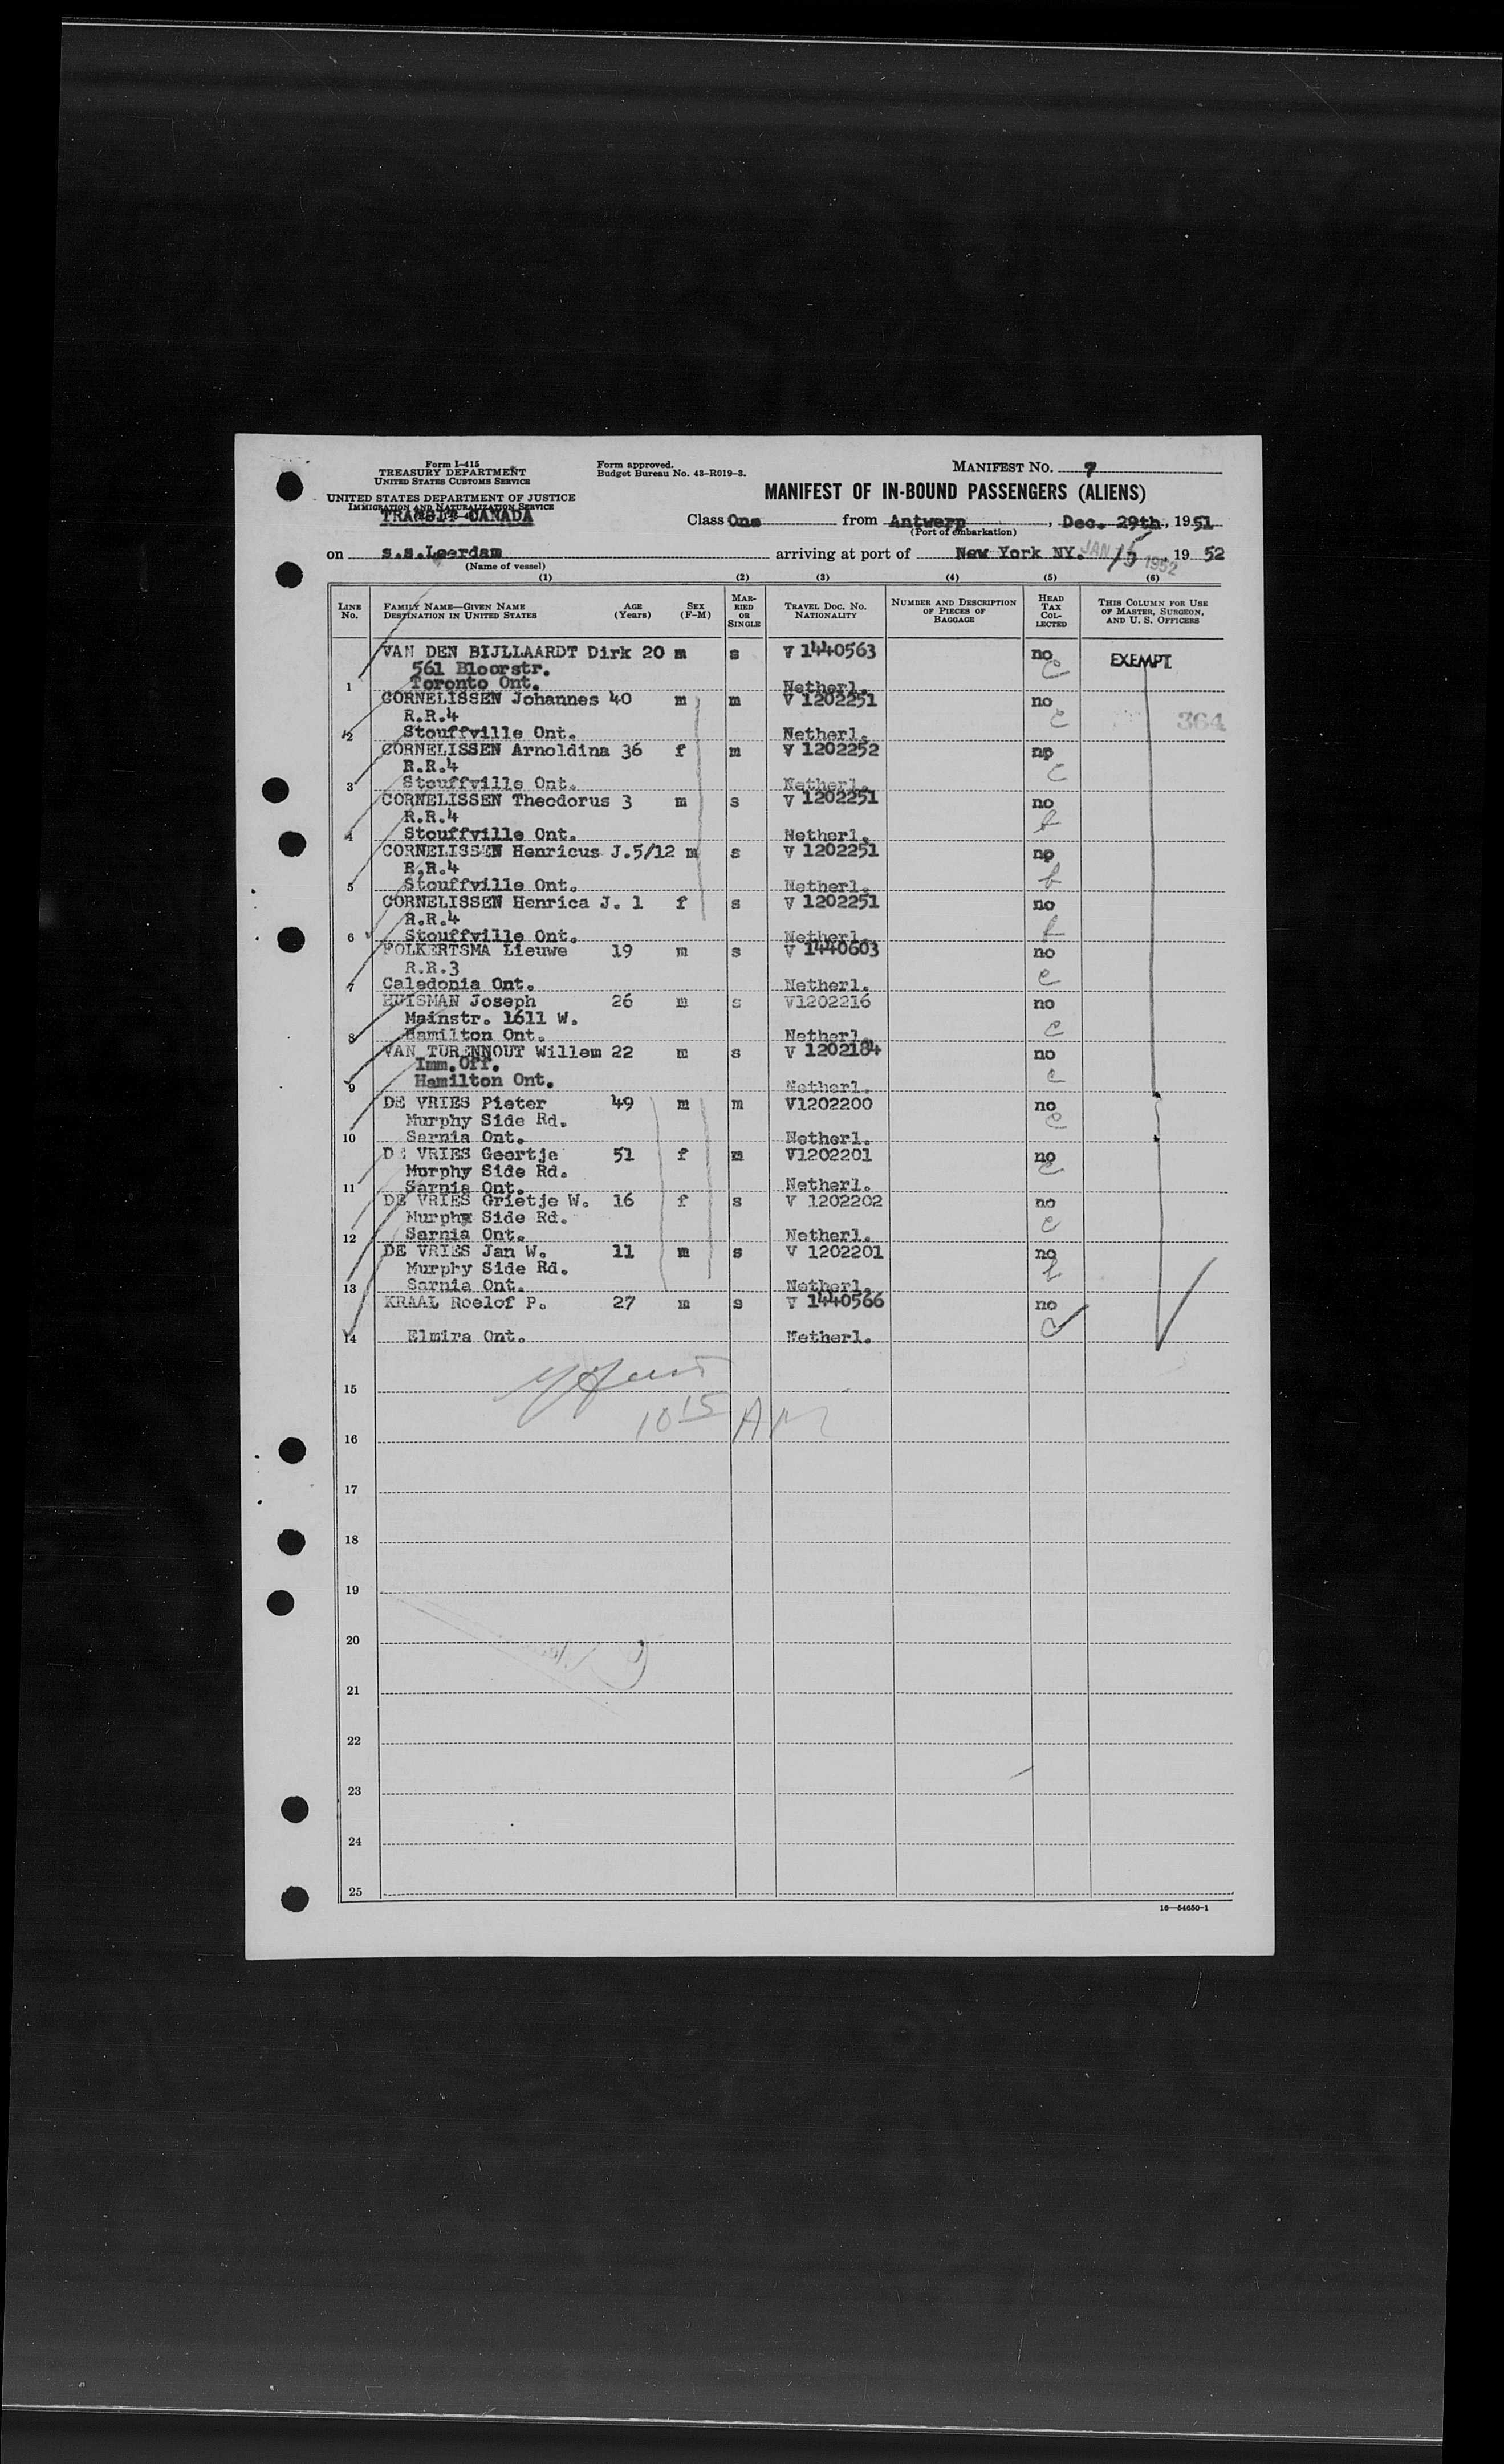 Form I-415
TREASURY DEPARTMENT
UNITED STATES CUSTOMS SERVICE
UNITED STATES DEPARTMENT OF JUSTICE
IMMIGRATION AND NATURALIZATION SERVICE
TRANSIT CANADA
Form approved.
Budget Bureau No. 43-R019-3.
MANIFEST NO. 7
MANIFEST OF IN-BOUND PASSENGERS (ALIENS)
Class One from Antwerp, Dec. 29th, 1951
(Port of embarkation)
on s.s.Leerdam arriving at port of New York NY. JAN 1952 , 19 52
(Name of vessel)
(1) (2) (3) (4) (5) (6)
LINE No. FAMILY NAME—GIVEN NAME DESTINATION IN UNITED STATES AGE (Years) SEX (F-M) MARRIED OR SINGLE TRAVEL DOC. NO. NATIONALITY NUMBER AND DESCRIPTION OF PIECES OF BAGGAGE HEAD TAX COLLECTED THIS COLUMN FOR USE OF MASTER, SURGEON, AND U. S. OFFICERS
VAN DEN BIJLLAARDT Dirk 20 m s V 1440563 no EXEMPT
561 Bloorstr. C
1 Toronto Ont. Netherl.
CORNELISSEN Johannes 40 m m V 1202251 no
R.R.4 C 364
2 Stouffville Ont. Netherl.
CORNELISSEN Arnoldina 36 f m V 1202252 no
R.R.4 C
3 Stouffville Ont. Netherl.
CORNELISSEN Theodorus 3 m s V 1202251 no
R.R.4
4 Stouffville Ont. Netherl.
CORNELISSEN Henricus J.5/12 m s V 1202251 no
R.R.4
5 Stouffville Ont. Netherl.
CORNELISSEN Henrica J. 1 f s V 1202251 no
R.R.4
6 Stouffville Ont. Netherl.
FOLKERTSMA Lieuwe 19 m s V 1440603 no
R.R.3 C
7 Caledonia Ont. Netherl.
HUISMAN Joseph 26 m s V1202216 no
Mainstr. 1611 W. C
8 Hamilton Ont. Netherl.
VAN TURENNOUT Willem 22 m s V 1202184 no
Imm.Off. C
9 Hamilton Ont. Netherl.
DE VRIES Pieter 49 m m V1202200 no
Murphy Side Rd. C
10 Sarnia Ont. Netherl.
DE VRIES Geertje 51 f m V1202201 no
Murphy Side Rd. C
11 Sarnia Ont. Netherl.
DE VRIES Grietje W. 16 f s V 1202202 no
Murphy Side Rd. C
12 Sarnia Ont. Netherl.
DE VRIES Jan W. 11 m s V 1202201 no
Murphy Side Rd.
13 Sarnia Ont. Netherl.
KRAAL Roelof P. 27 m s V 1440566 no
14 Elmira Ont. Netherl. C
15
10 15 AM
16
17
18
19
20
21
22
23
24
25
16—54650-1